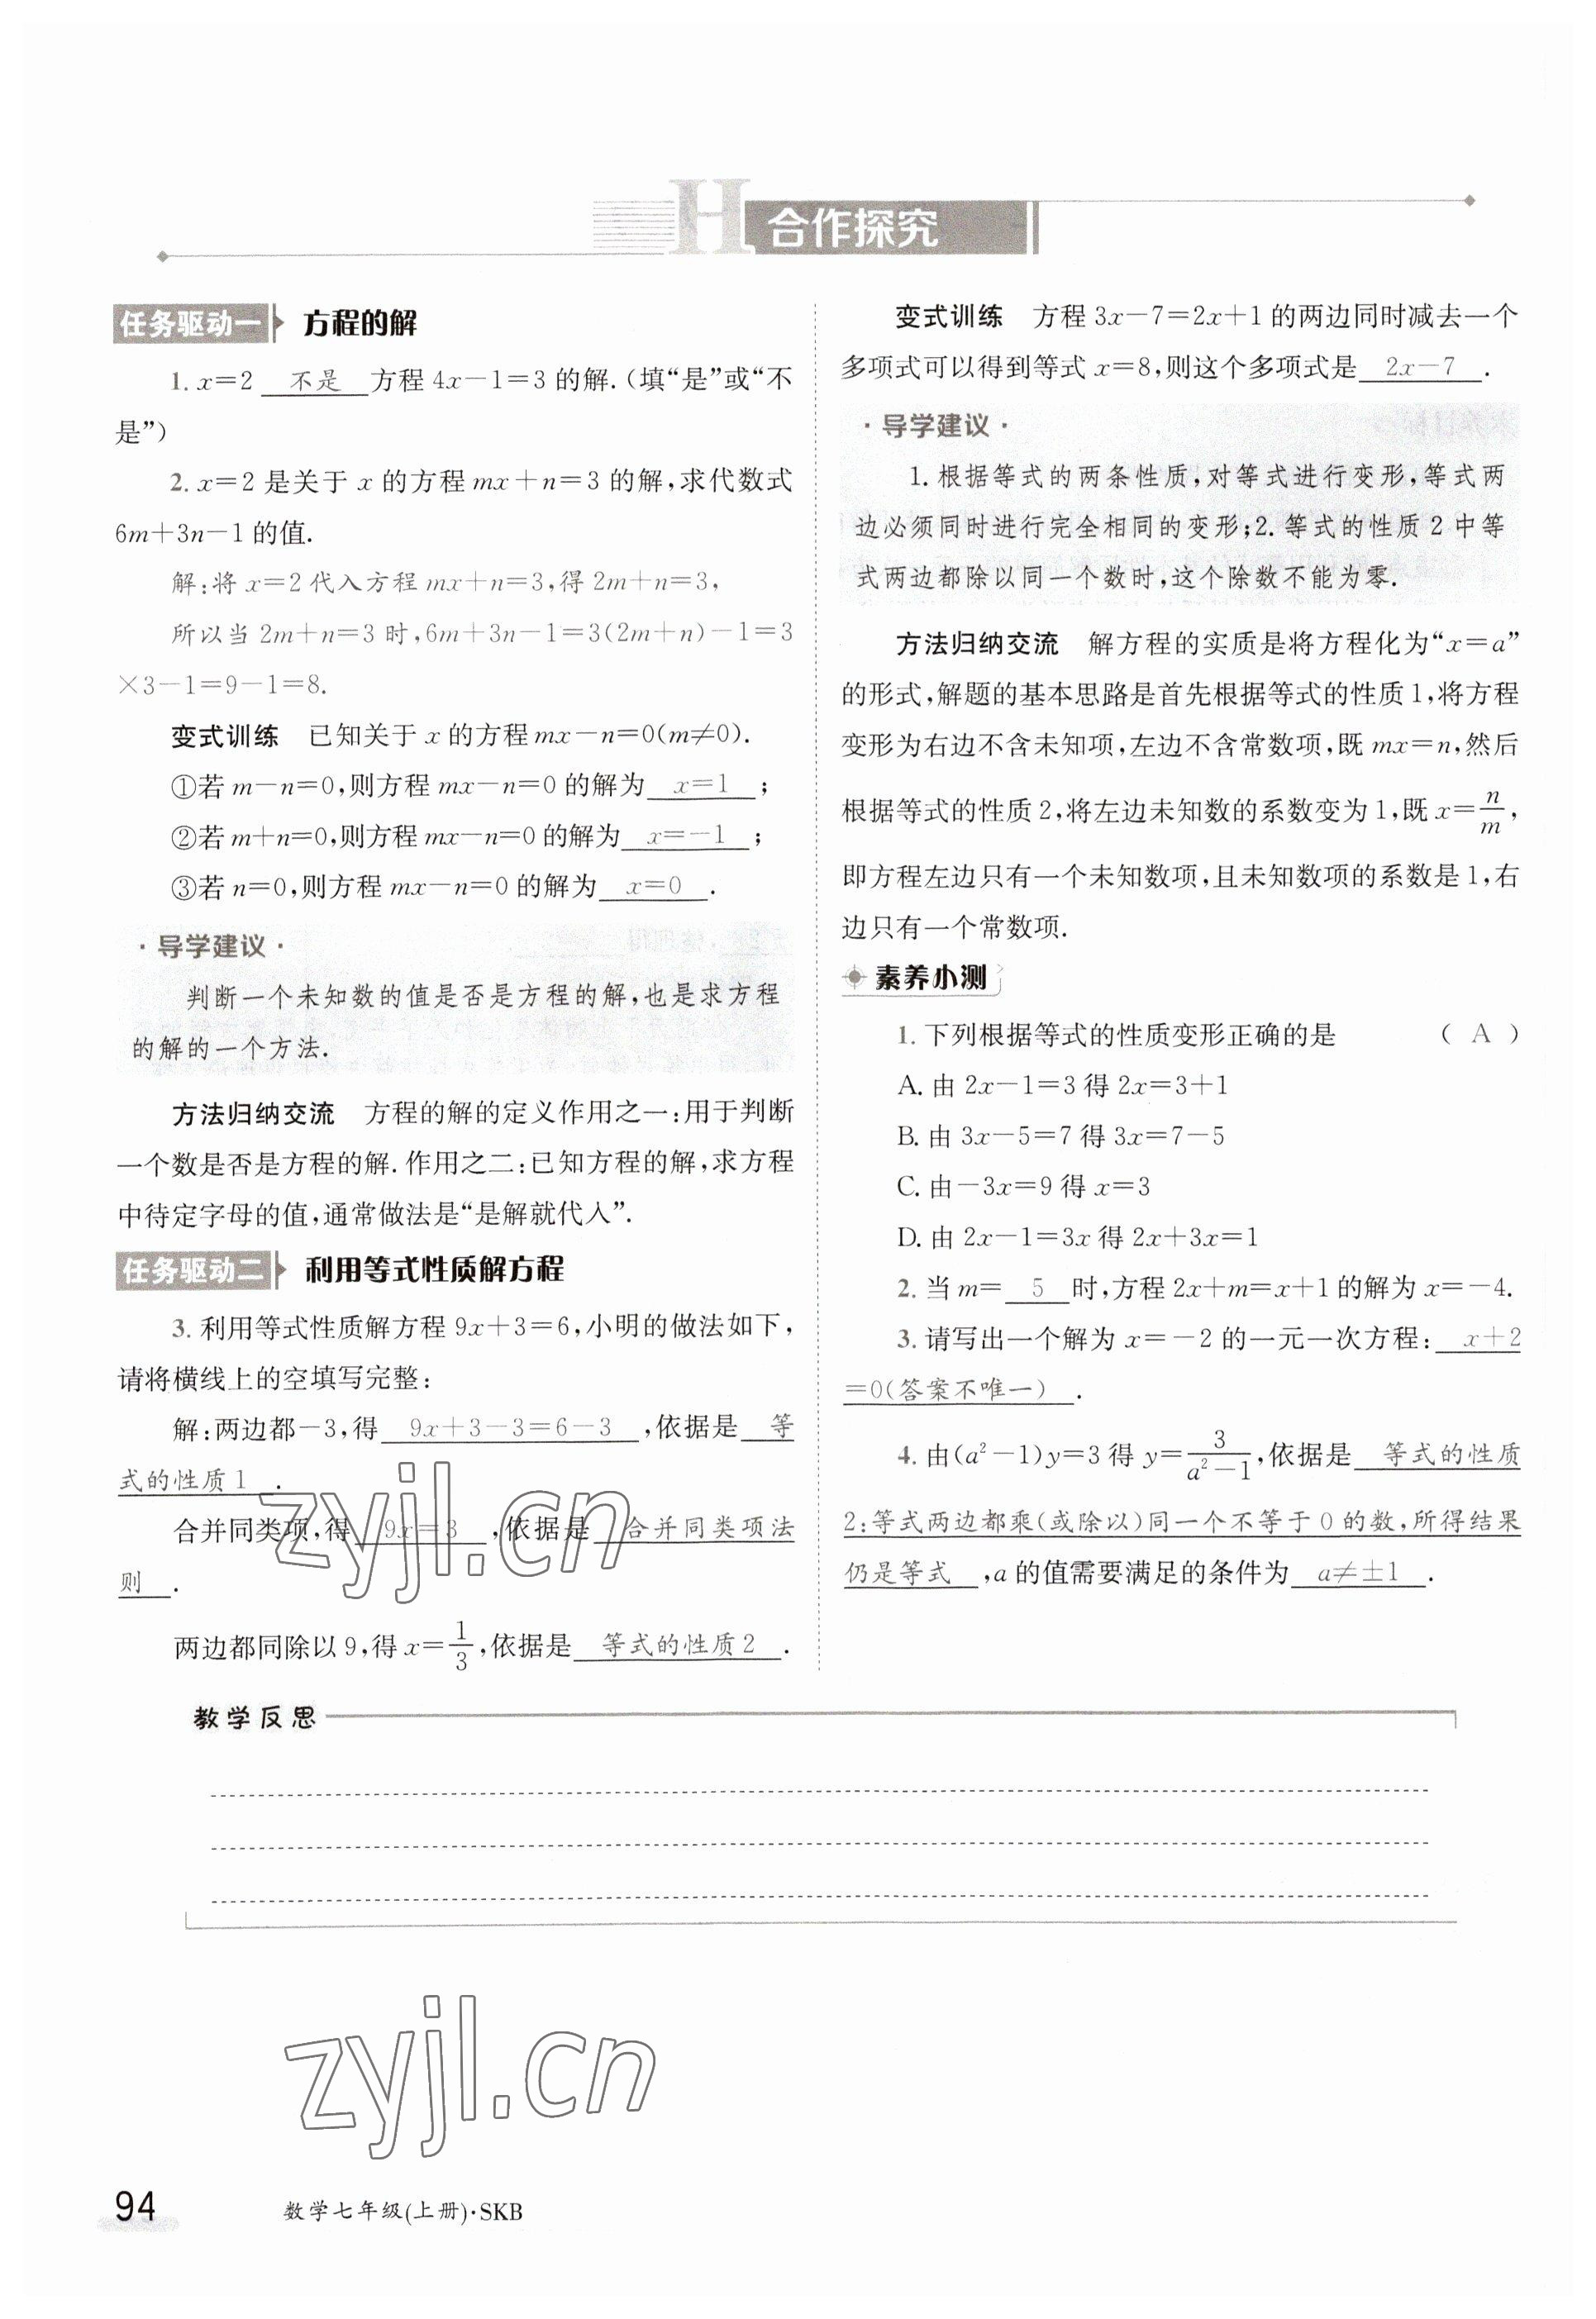 H 合作探究
任务驱动一 方程的解
1. x=2 不是 方程 4x-1=3 的解.(填“是”或“不
是”)
2. x=2 是关于 x 的方程 mx+n=3 的解,求代数式
6m+3n-1 的值.
解:将 x=2 代入方程 mx+n=3,得 2m+n=3,
所以当 2m+n=3 时,6m+3n-1=3(2m+n)-1=3
×3-1=9-1=8.
变式训练 已知关于 x 的方程 mx-n=0(m≠0).
①若 m-n=0,则方程 mx-n=0 的解为 x=1 ;
②若 m+n=0,则方程 mx-n=0 的解为 x=-1 ;
③若 n=0,则方程 mx-n=0 的解为 x=0 .
·导学建议·
判断一个未知数的值是否是方程的解,也是求方程
的解的一个方法.
方法归纳交流 方程的解的定义作用之一:用于判断
一个数是否是方程的解.作用之二:已知方程的解,求方程
中待定字母的值,通常做法是“是解就代入”.
任务驱动二 利用等式性质解方程
3. 利用等式性质解方程 9x+3=6,小明的做法如下,
请将横线上的空填写完整:
解:两边都-3,得 9x+3-3=6-3 ,依据是 等
式的性质 1 .
合并同类项,得 9x=3 ,依据是 合并同类项法
则 .
两边都同除以 9,得 x=1/3,依据是 等式的性质 2 .
变式训练 方程 3x-7=2x+1 的两边同时减去一个
多项式可以得到等式 x=8,则这个多项式是 2x-7 .
·导学建议·
1. 根据等式的两条性质,对等式进行变形,等式两
边必须同时进行完全相同的变形;2. 等式的性质 2 中等
式两边都除以同一个数时,这个除数不能为零.
方法归纳交流 解方程的实质是将方程化为“x=a”
的形式,解题的基本思路是首先根据等式的性质 1,将方程
变形为右边不含未知项,左边不含常数项,既 mx=n,然后
根据等式的性质 2,将左边未知数的系数变为 1,既 x=n/m,
即方程左边只有一个未知数项,且未知数项的系数是 1,右
边只有一个常数项.
素养小测
1. 下列根据等式的性质变形正确的是 ( A )
A. 由 2x-1=3 得 2x=3+1
B. 由 3x-5=7 得 3x=7-5
C. 由-3x=9 得 x=3
D. 由 2x-1=3x 得 2x+3x=1
2. 当 m= 5 时,方程 2x+m=x+1 的解为 x=-4.
3. 请写出一个解为 x=-2 的一元一次方程: x+2
=0(答案不唯一) .
4. 由(a²-1)y=3 得 y=3/(a²-1),依据是 等式的性质
2:等式两边都乘(或除以)同一个不等于 0 的数,所得结果
仍是等式 ,a 的值需要满足的条件为 a≠±1 .
教学反思
zyjl.cn
zyjl.cn
94 数学七年级(上册)·SKB